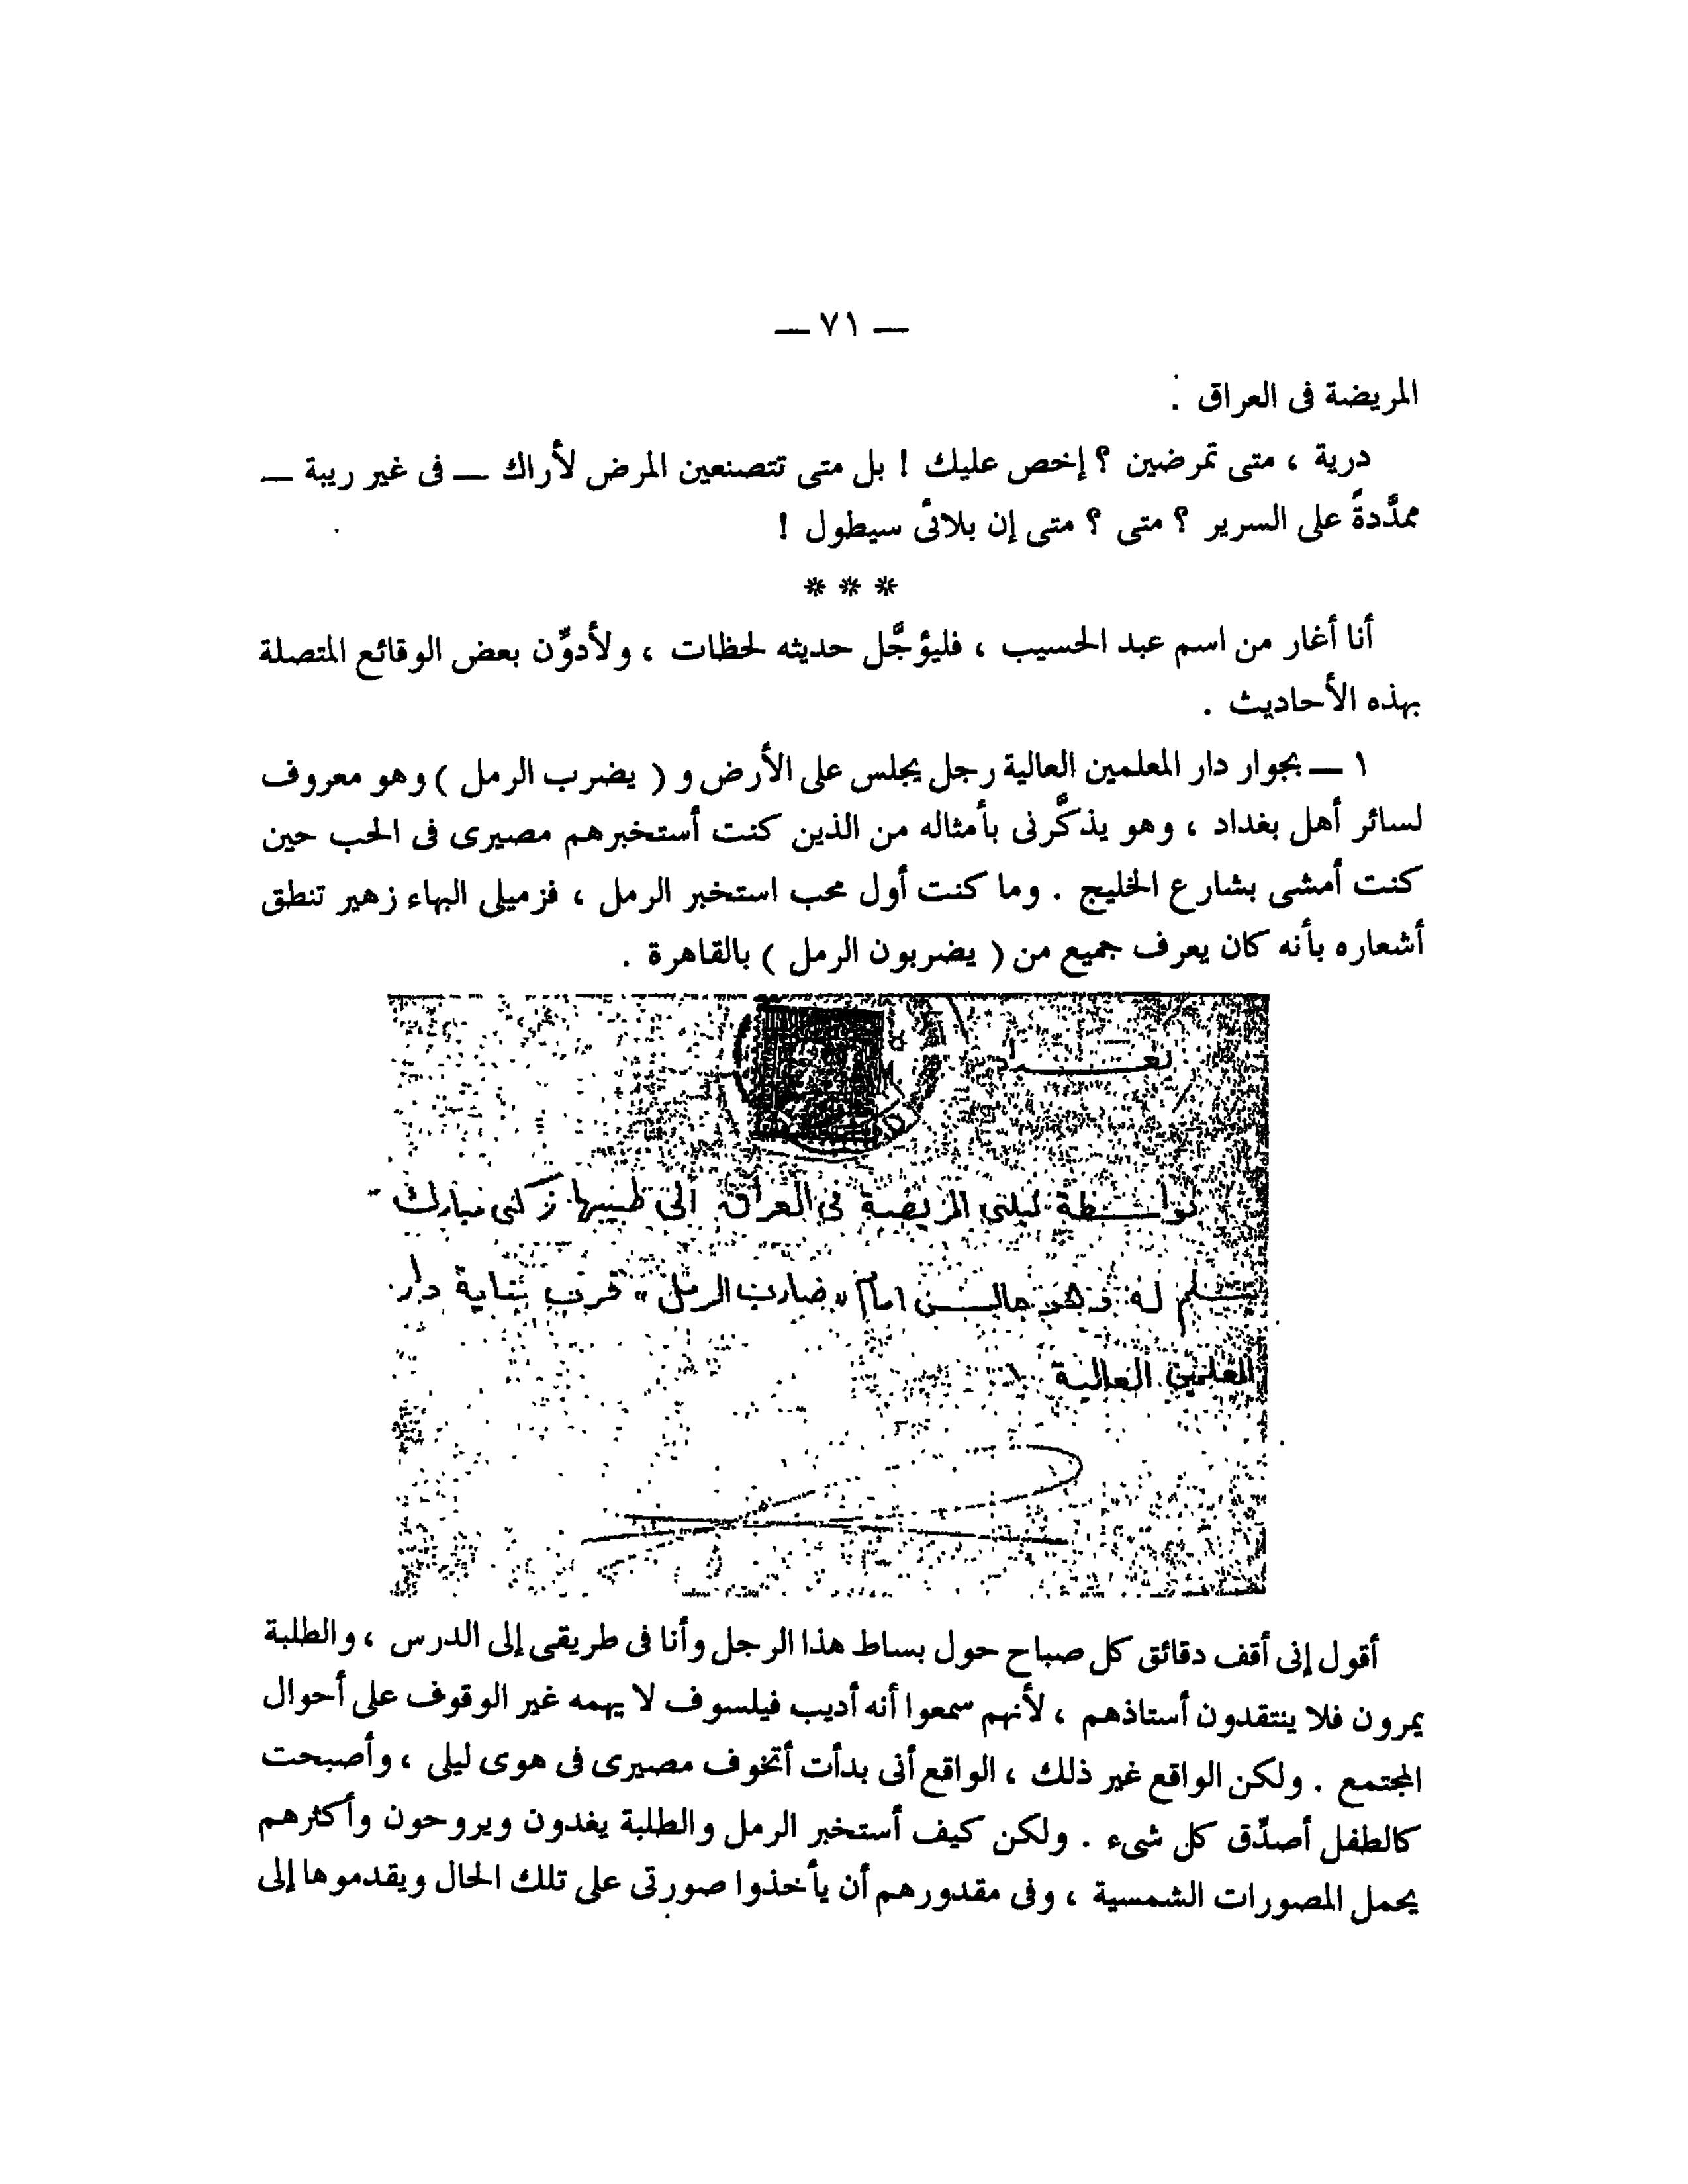 — ٧١ —
المريضة فى العراق .
درية ، متى تمرضين ؟ إخص عليك ! بل متى تتصنعين المرض لأراك — فى غير ريبة —
ممدَّدةً على السرير ؟ متى ؟ متى إن بلائى سيطول !
* * *
أنا أغار من اسم عبد الحسيب ، فليؤجَّل حديثه لحظات ، ولأدوِّن بعض الوقائع المتصلة
بهذه الأحاديث .
١ — بجوار دار المعلمين العالية رجل يجلس على الأرض و ( يضرب الرمل ) وهو معروف
لسائر أهل بغداد ، وهو يذكَّرنى بأمثاله من الذين كنت أستخبرهم مصيرى فى الحب حين
كنت أمشى بشارع الخليج . وما كنت أول محب استخبر الرمل ، فزميلى البهاء زهير تنطق
أشعاره بأنه كان يعرف جميع من ( يضربون الرمل ) بالقاهرة .
بغداد
بواسطة ليلى المريضة في العراق الى طبيبها زكي مبارك
تسلم له وهو جالس امام «ضارب الرمل» قرب بناية دار
المعلمين العالية
أقول إنى أقف دقائق كل صباح حول بساط هذا الرجل وأنا فى طريقى إلى الدرس ، والطلبة
يمرون فلا ينتقدون أستاذهم ، لأنهم سمعوا أنه أديب فيلسوف لا يهمه غير الوقوف على أحوال
المجتمع . ولكن الواقع غير ذلك ، الواقع أنى بدأت أتخوف مصيرى فى هوى ليلى ، وأصبحت
كالطفل أصدِّق كل شىء . ولكن كيف أستخبر الرمل والطلبة يغدون ويروحون وأكثرهم
يحمل المصورات الشمسية ، وفى مقدورهم أن يأخذوا صورتى على تلك الحال ويقدموها إلى